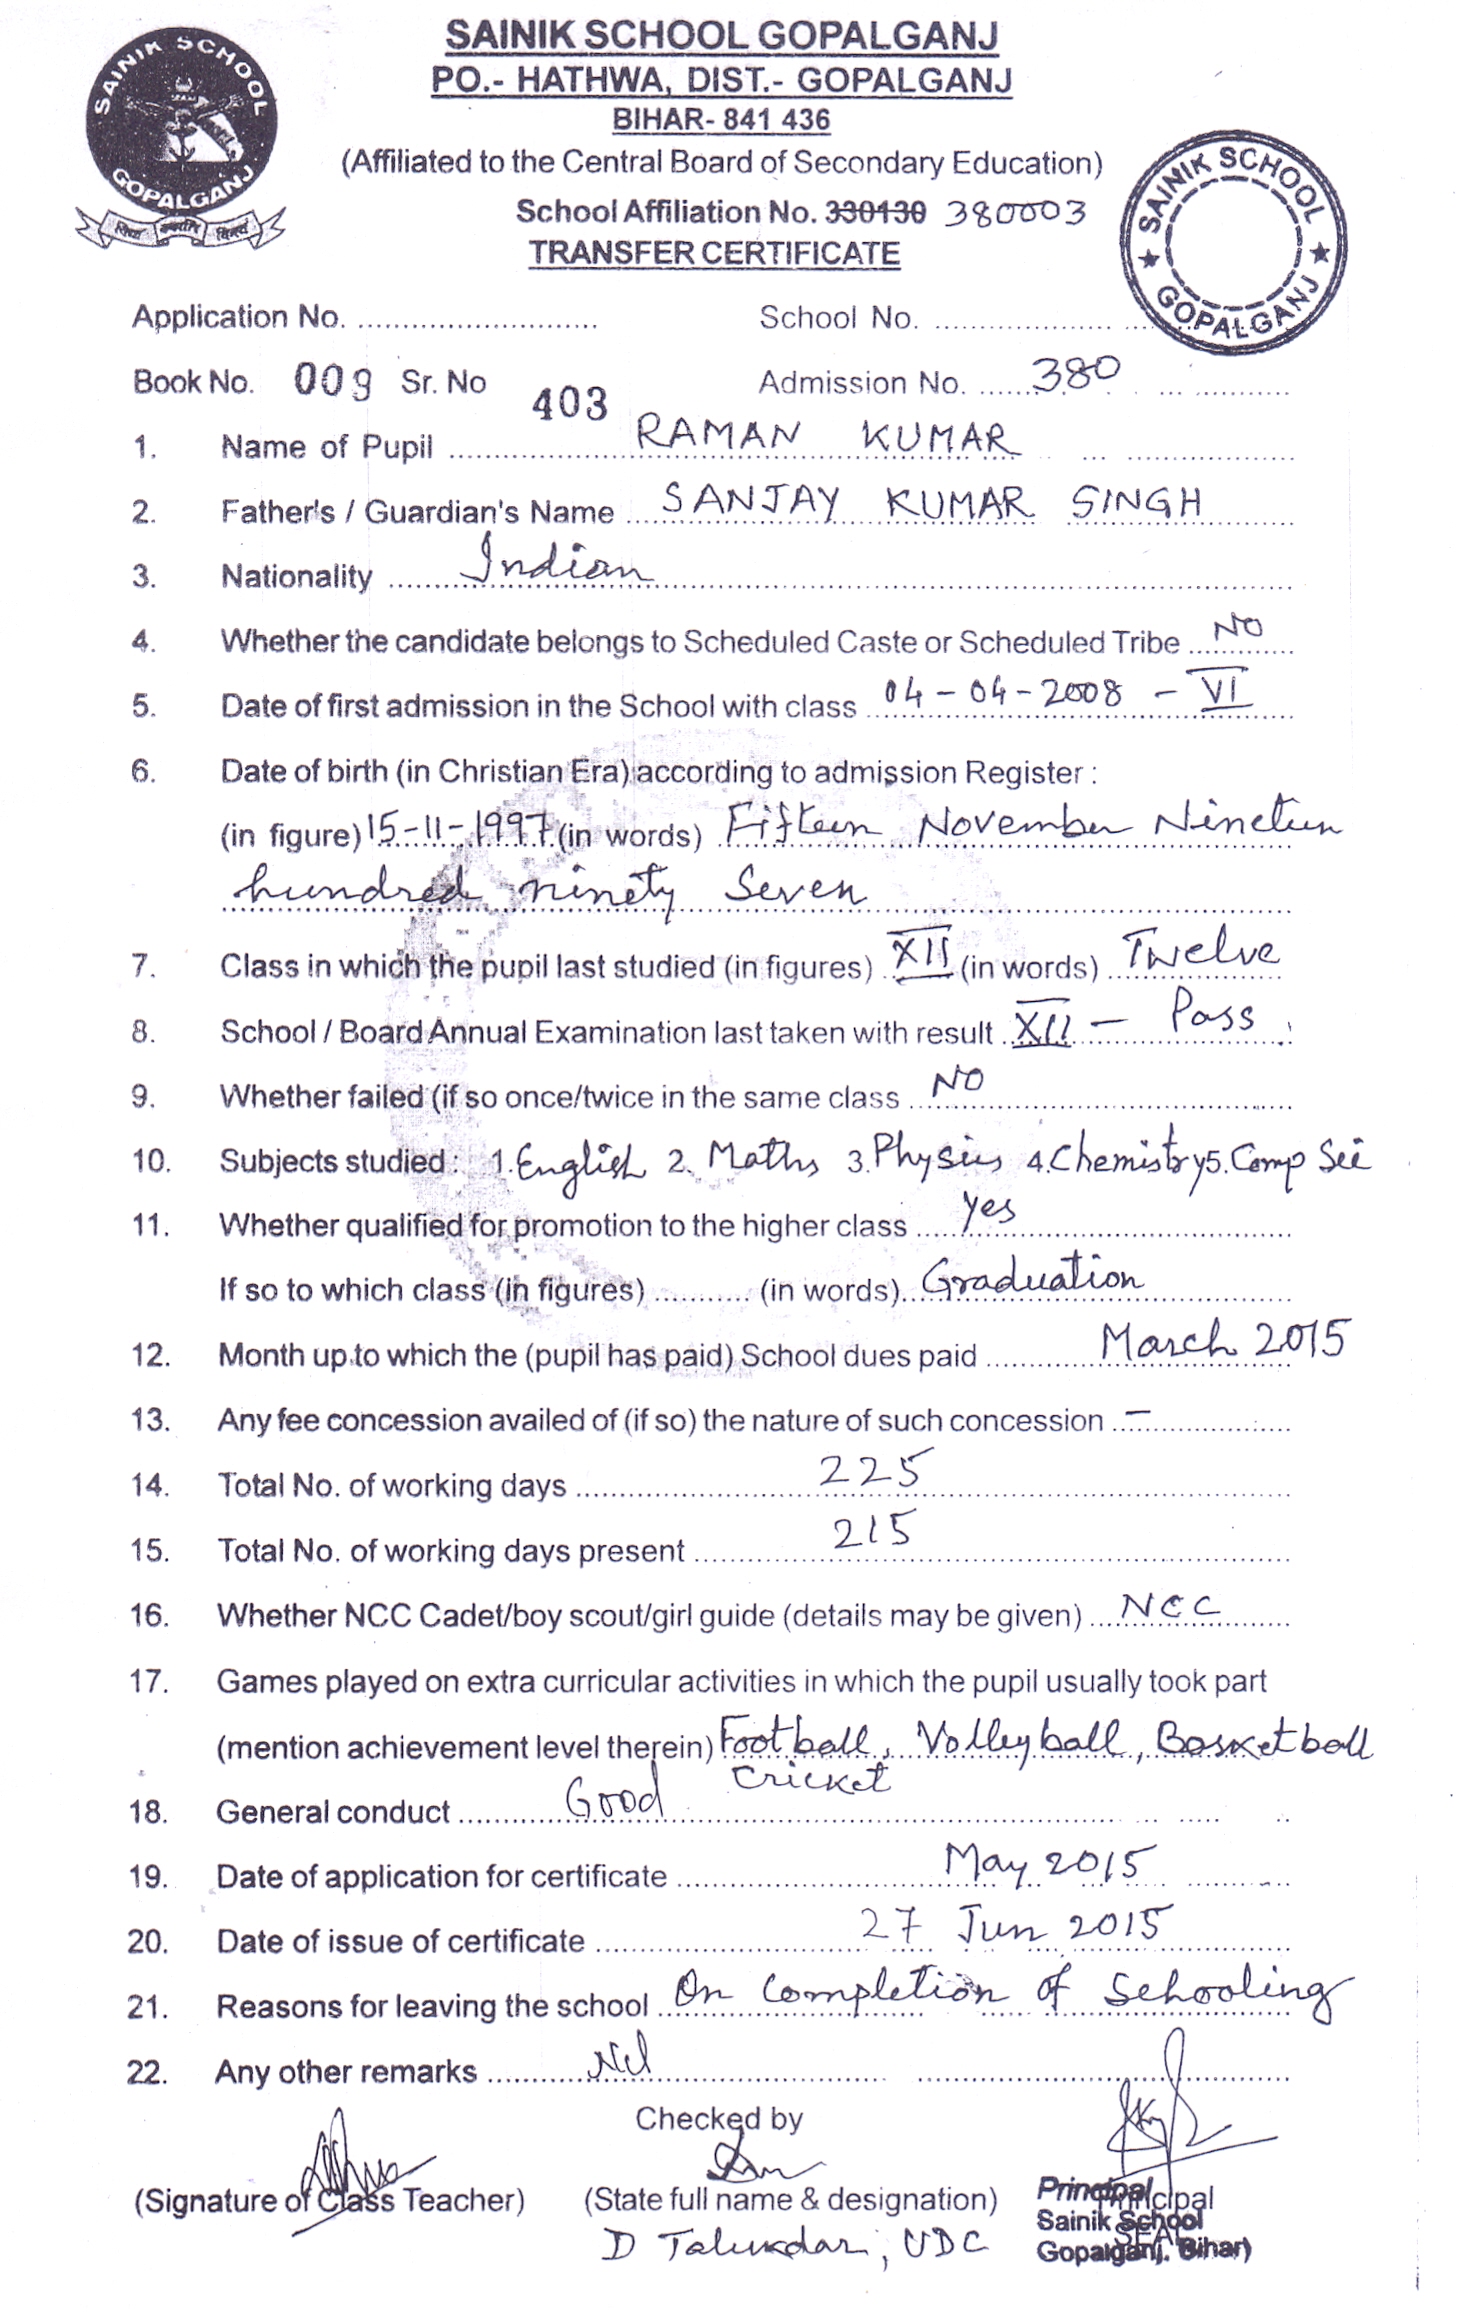 SAINIK SCHOOL GOPALGANJ
PO.- HATHWA, DIST.- GOPALGANJ
BIHAR- 841 436
(Affiliated to the Central Board of Secondary Education)
School Affiliation No. 330130 380003
TRANSFER CERTIFICATE
SAINIK SCHOOL
GOPALGANJ
SAINIK SCHOOL
GOPALGANJ
Application No. ........................... School No. ...........................
Book No. 009 Sr. No 403 Admission No. ......380
1. Name of Pupil RAMAN KUMAR
2. Father's / Guardian's Name SANJAY KUMAR SINGH
3. Nationality Indian
4. Whether the candidate belongs to Scheduled Caste or Scheduled Tribe NO
5. Date of first admission in the School with class 04-04-2008 - VI
6. Date of birth (in Christian Era) according to admission Register :
(in figure) 15-11-1997 (in words) Fifteen November Nineteen
hundred ninety Seven
7. Class in which the pupil last studied (in figures) XII (in words) Twelve
8. School / Board Annual Examination last taken with result XII - Pass
9. Whether failed (if so once/twice in the same class NO
10. Subjects studied : 1. English 2. Maths 3. Physics 4. Chemistry 5. Comp Sci
11. Whether qualified for promotion to the higher class Yes
If so to which class (in figures) ........... (in words) Graduation
12. Month up to which the (pupil has paid) School dues paid March 2015
13. Any fee concession availed of (if so) the nature of such concession -
14. Total No. of working days 225
15. Total No. of working days present 215
16. Whether NCC Cadet/boy scout/girl guide (details may be given) NCC
17. Games played on extra curricular activities in which the pupil usually took part
(mention achievement level therein) Football, Volleyball, Basketball
Cricket
18. General conduct Good
19. Date of application for certificate May 2015
20. Date of issue of certificate 27 Jun 2015
21. Reasons for leaving the school On Completion of Schooling
22. Any other remarks Nil
Checked by
(Signature of Class Teacher) (State full name & designation) Principal
D Talukdar, UDC
SEAL
Principal
Sainik School
Gopalganj. Bihar)